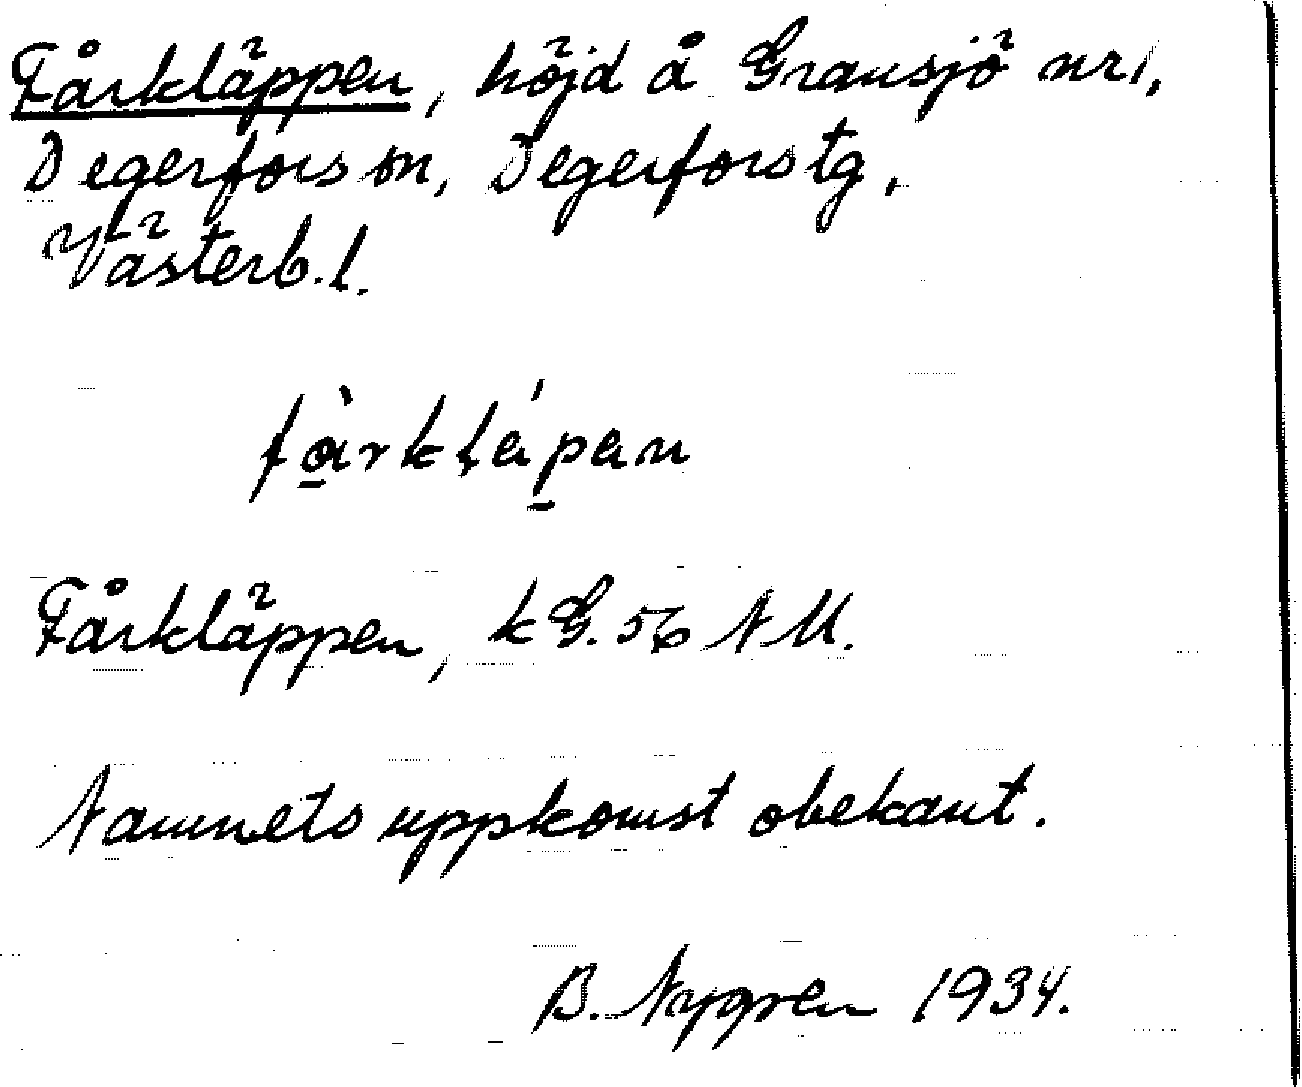 Fårkläppen, höjd å Gransjö nr 1,
Degerfors sn, Degerfors tg,
Västerb. l.
Fårkläppen, k G. 56 N M.
Namnets uppkomst obekant.
B. Nygren 1934.